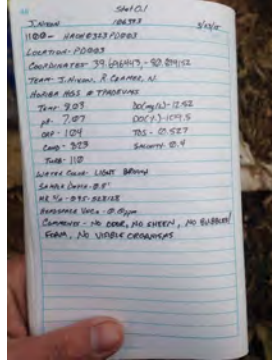 Site 0.1
J. Nixon 106393 3/23/15
1100 - NACH0323PD003
LOCATION - PD003
COORDINATES - 39.646443, -80.859152
TEAM - J. NIXON, R CRAMER, N.
HORIBA MSS #
TEMP - 8.03 DO(mg/L) - 12.52
pH - 7.07 DO(%) - 109.5
ORP - 104 TDS - 0.527
COND - 823 SALINITY - 0.4
TURB - 110
WATER COLOR - LIGHT BROWN
SAMPLE DEPTH - 0.5'
HEADSPACE VOCs - 0.0 ppm
COMMENTS - NO ODOR, NO SHEEN, NO BUBBLES/
FOAM, NO VISIBLE ORGANISMS